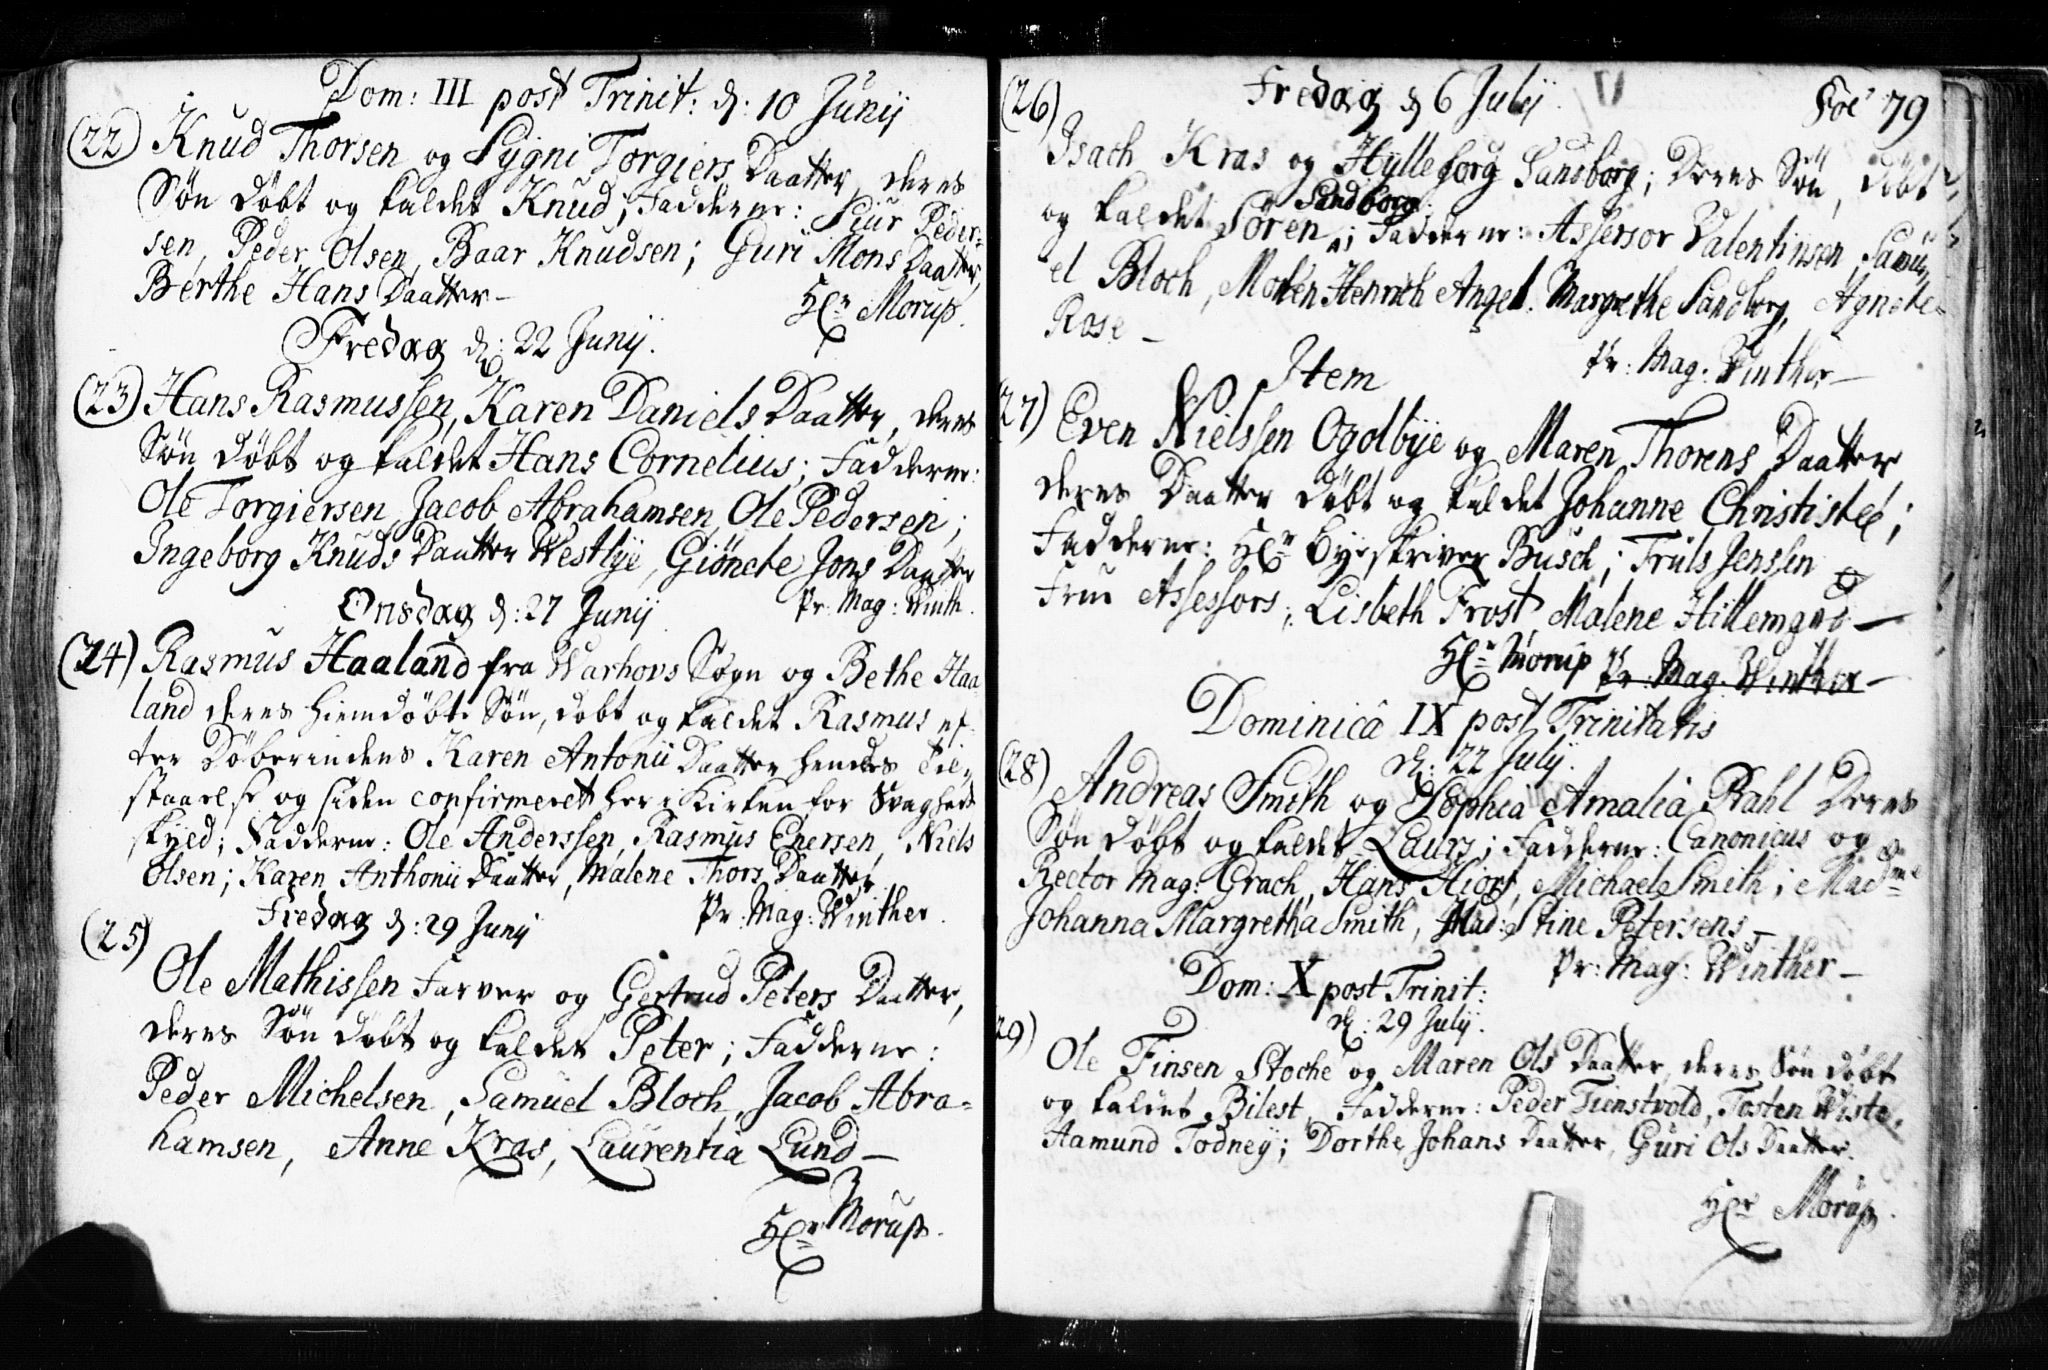 Dom: III post Trinit: d: 10 Junij
(22) Knud Thorsen og Sygni Torgiers Daatter, deres
Søn døbt og kaldet Knud; Fadderne: Siur Peder=
sen, Peder Olsen, Baar Knudsen; Guri Mons Daatter,
Berthe Hans Daatter –
Hr. Morup.
Fredag d: 22 Junij.
(23) Hans Rasmussen, Karen Daniels Daatter, deres
Søn døbt og kaldet Hans Cornelius; Fadderne:
Ole Torgiersen, Jacob Abrahamsen, Ole Pedersen;
Ingeborg Knuds Daatter Westbye, Giöncte Jons Daatter
Pr: Mag: Winth.
Onsdag d: 27 Junij
(24) Rasmus Haaland fra Warhovs Sogn og Bethe Haa-
land deres hiemdøbt Søn, døbt og kaldet Rasmus ef-
ter Døberindens Karen Antonii Daatter hendes Til-
staaelse og siden confirmeret her i Kirken for Svaghed
skyld; Fadderne: Ole Anderssen, Rasmus Enersen, Niels
Olsen; Karen Anthonii Daatter, Malene Thors Daatter.
Pr: Mag: Winther.
Fredag d: 29 Junij
(25)
Ole Mathissen Farver og Gertrud Peters Daatter,
deres Søn døbt og kaldet Peter; Fadderne:
Peder Michelsen, Samuel Bloch, Jacob Abra=
hamsen, Anne Kras, Laurentia Lund –
Hr. Morup.
Fol 79
Fredag d 6 Julij.
(26)
Isach Kras og Hylleborg Sandborg; Deres Søn, døbt
Sandborg
og kaldet Sören; Fadderne: Assessor Valentinsen, Samu-
el Bloch, Morten Henrich Angel. Margrethe Sandborg, Agnete
Rose –
Pr: Mag: Winther –
Item
27) Even Nielssen Ogolbye og Maren Thorens Daatter
deres Daatter døbt og kaldet Johanne Christistee;
Fadderne: Hr Byeskriver Busch; Truls Jenssen
Frue Assessors, Lisbeth Frost Malene Hillemans –
Hr. Morup Pr: Mag. Winther –
Dominicâ IX post Trinitatis
d: 22 Julij.
(28)
Andreas Smith og Sophia Amalia Rahl Deres
Søn døbt og kaldet Laurs; Fadderne: Canonicus og
Rector Mag: Grach, Hans Hiort, Michael Smith; Madme
Johanna Margretha Smith, Mad: Stine Petersens –
Pr: Mag: Winther –
Dom: X post Trinit:
d: 29 Julij.
29)
Ole Finsen Stoche og Maren Ols Daatter, deres Søn døbt
og kaldet Bilest, Fadderne: Peder Tienstvold, Tosten Wiste,
Aamund Todney; Dorthe Johans Daatter, Guri Ols Daatter.
Hr Morup.